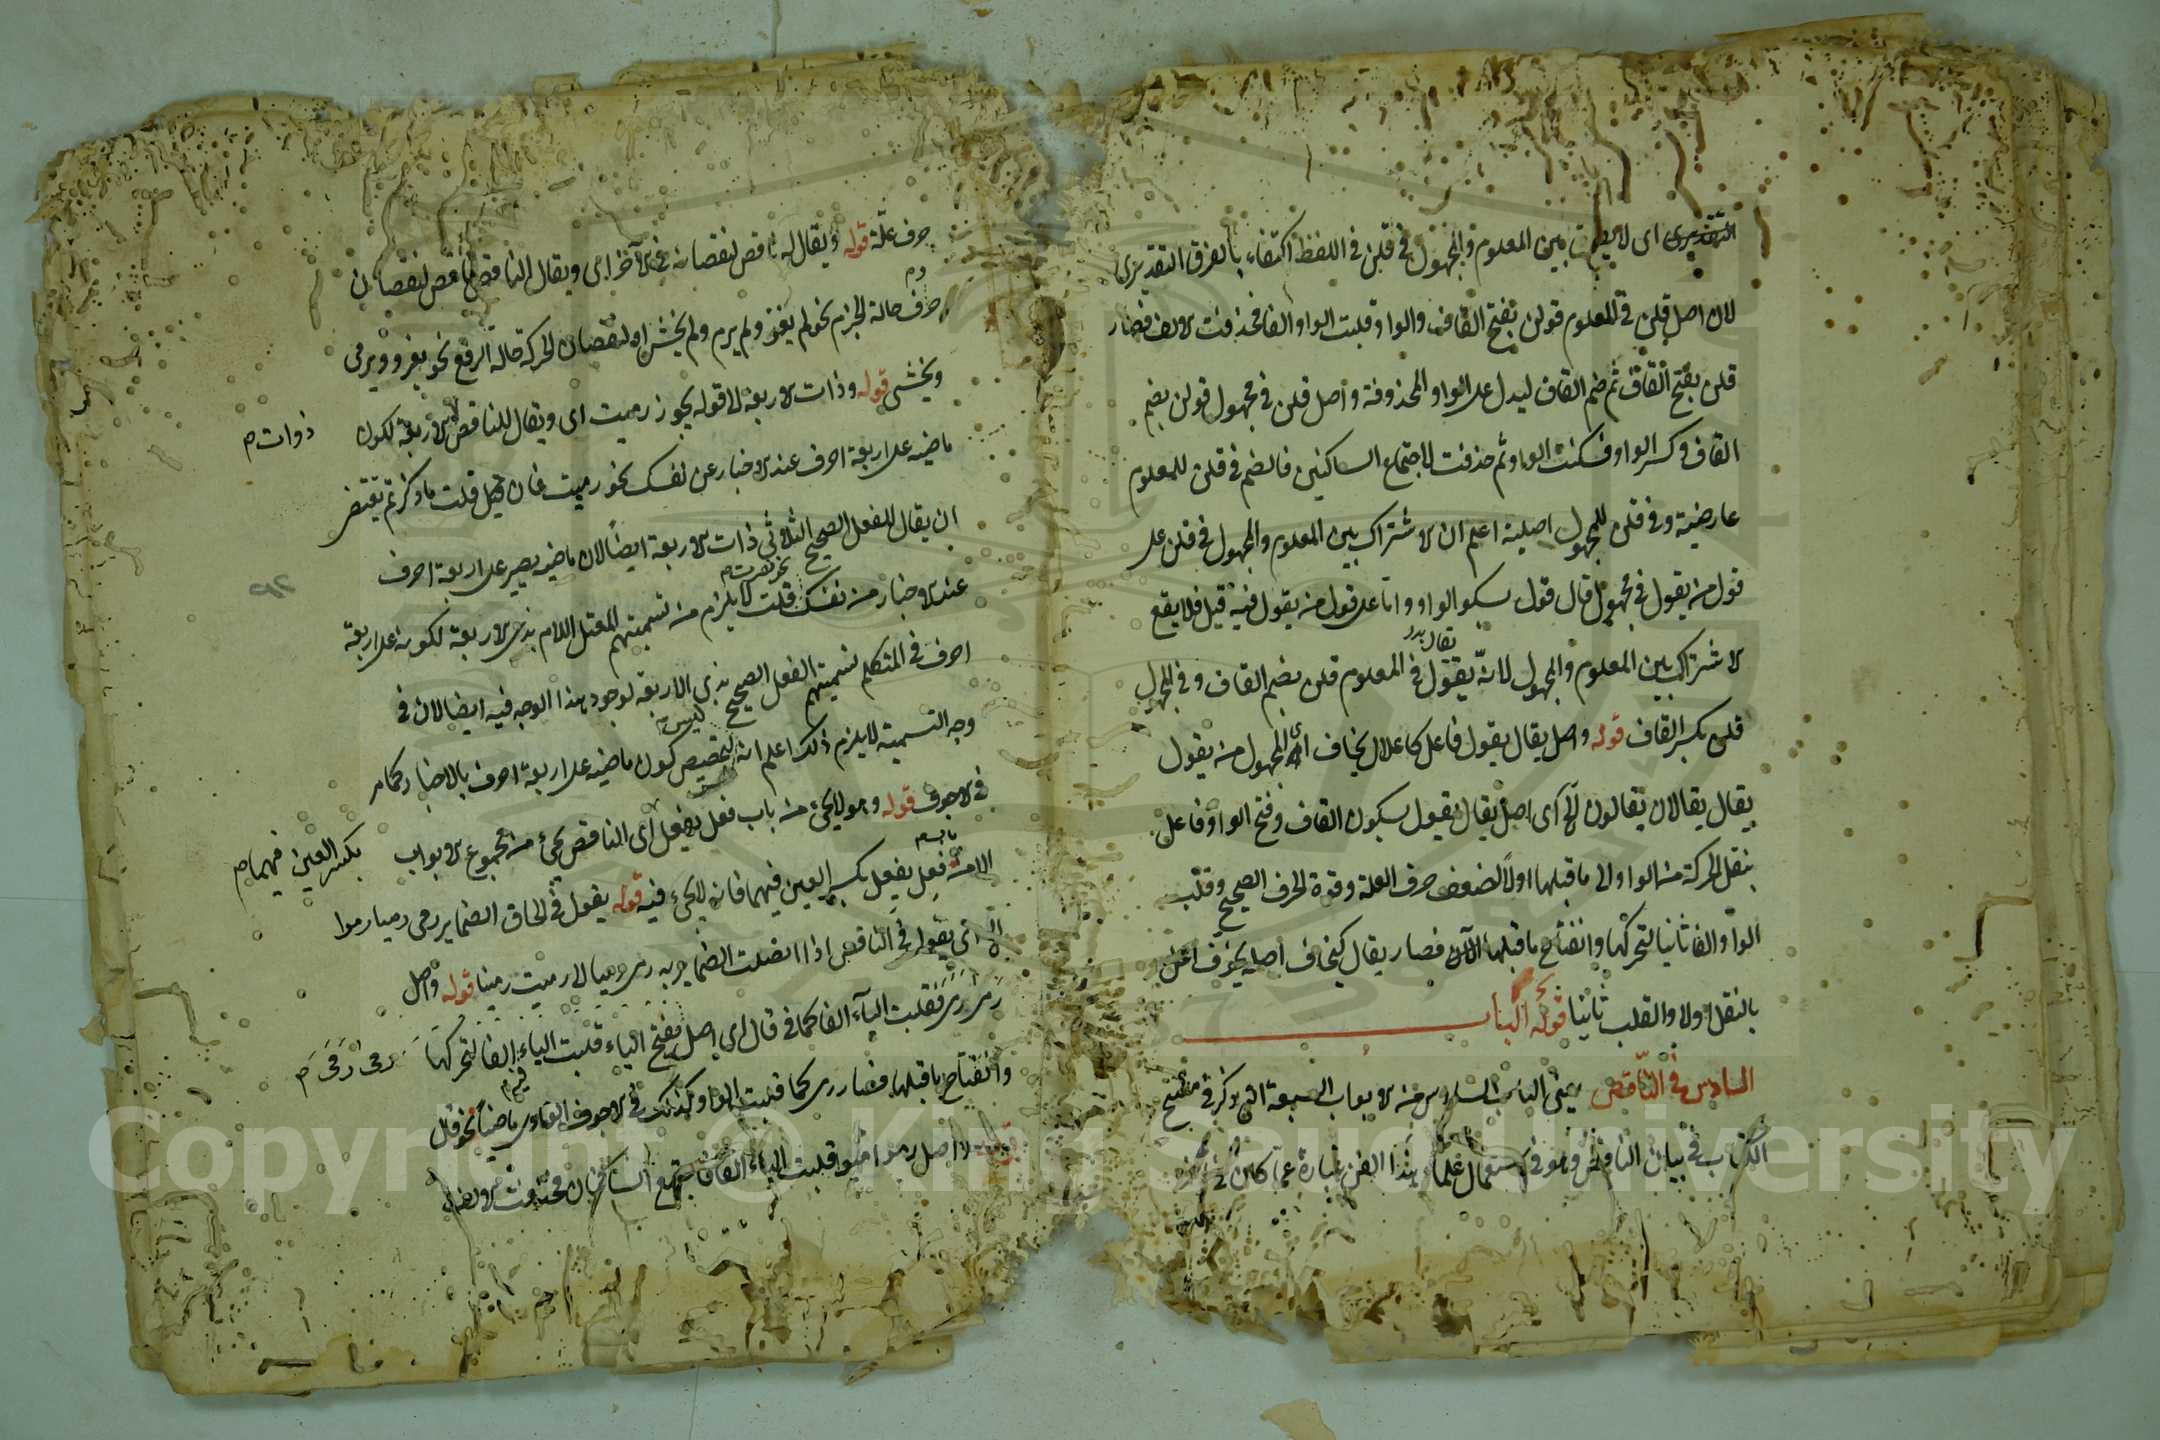 التقديرى اى لا يفرق بين المعلوم والمجهول فى قلن فى اللفظ اكتفاء بالفرق التقديرى
لان اصل قلن فى المعلوم قولن بفتح القاف والواو قلبت الواو الفا فحذفت الالف فصار
قلن بفتح القاف ثم ضم القاف ليدل على الواو المحذوفة واصل قلن فى مجهول قولن بضم
القاف وكسر الواو فسكنت الواو ثم حذفت لاجتماع الساكنين فالضم فى قلن للمعلوم
عارضية وفى قلن للمجهول اصلية اعلم ان الاشتراك بين المعلوم والمجهول فى قلن على
قول من يقول فى مجهول قال قول بسكو الواو واما على قول من يقول فيه قيل فلا يقع
الاشتراك بين المعلوم والمجهول لانه يقول فى المعلوم قلن بضم القاف وفى المجهول
يقال بدر
قلن بكسر القاف قوله واصل يقال يقول فاعل كاعلال يخاف اى المجهول من يقول
يقال يقالان يقالون الخ اى اصل يقال يقول بسكون القاف وفتح الواو فاعل
بنقل الحركة من الواو الى ما قبلها اولا لضعف حرف العلة وقوة الحرف الصحيح وقلب
الواو الفا ثانيا لتحركها وانفتاح ما قبلها الآن فصار يقال كيخاف اصله يخوف اعل
بالنقل اولا والقلب ثانيا قوله الباب
السادس فى الناقص يعنى الباب السادس من الابواب السبعة التى ذكر فى مفتتح
الكتاب فى بيان الناقص وهو فى استعمال علماء هذا الفن عبارة عما كان فى آخره
حرف علة قوله ويقال له ناقص لنقصانه فى الآخر اى ويقال الناقص ناقص لنقصان
حرف حالة الجزم نحو لم يغز ولم يرم ولم يخش او لنقصان الحركة حالة الرفع نحو يغزو ويرمى
ويخشى قوله وذات الاربعة الى قوله يجوز رميت اى ويقال للناقص الاربعة لكون
ذوات م
ماضيه على اربعة احرف عند الاخبار عن نفسك نحو رميت فان قيل قلت ما ذكرتم يقتضى
ان يقال للفعل الصحيح الثلاثى ذات الاربعة ايضا لان ماضيه يصير على اربعة احرف
عند الاخبار من نفسك قلت لا يلزم من تسميتهم المعتل اللام بذى الاربعة لكونه على اربعة
احرف فى المتكلم تسميتهم الفعل الصحيح بذى الاربعة لوجود هذا الوجه فيه ايضا لان فى
وجه التسمية لا يلزم ذلك اعلم ان تخصيص كون ماضيه على اربعة احرف بالاخبار كما مر
فى الاجوف قوله وهو لا يجئ من باب فعل يفعل اى الناقص يجئ من مجموع الابواب
بكسر العين فيهما م
الا من فعل يفعل بكسر العين فيهما فانه لا يجئ فيه قوله يقول فى الحاق الضماير رمى رميا رموا
الخ اى يقول فى الناقص اذا اتصلت الضماير به رمى رميا الى رميت رمينا قوله واصل
رمى رمى فقلبت الياء الفا كما فى قال اى اصل بفتح الياء قلبت الياء الفا لتحركها
رمى رمى م
وانفتاح ما قبلها فصار رمى كما قلبت الواو كذلك فى الاجوف الواوى ماضيا نحو قال
قوله اصل رموا رميوا قلبت الياء الفا فاجتمع الساكنان فحذفت الالف